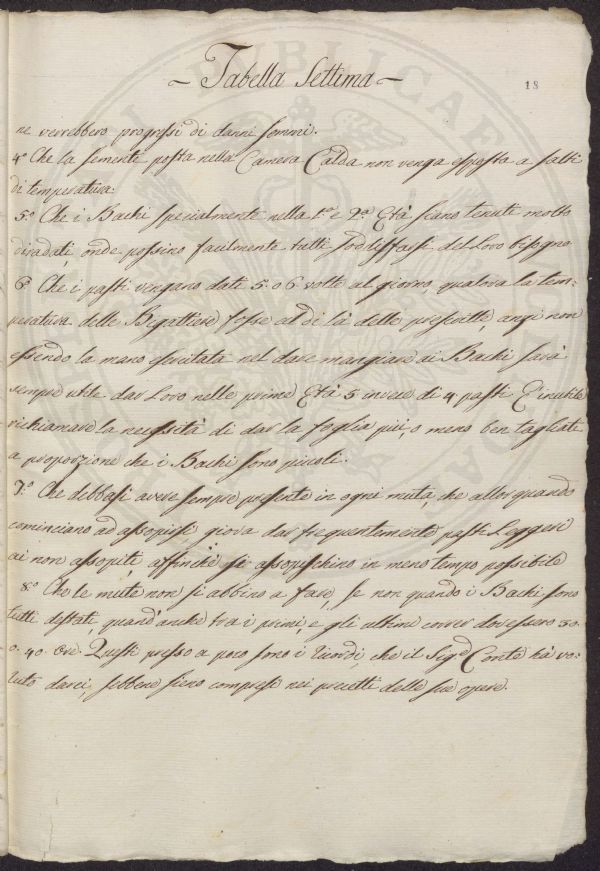 - Tabella Settima -
18
ne verrebbero progressi di danni sommi.
4.° Che la semente posta nella Camera Calda non venga esposta a salti
di temperatura:
5.° Che i Bachi specialmente nella 1.a e 2.a Età siano tenuti molto
diradati onde possino facilmente tutti sodisfarsi del Loro bisogno
6.° Che i pasti vengano dati 5. o 6. volte al giorno, qualora la tem=
peratura delle Bigattiere fosse al di là delle prescritte, anzi non
essendo la mano esercitata nel dare mangiare ai Bachi sarà
sempre utile dar Loro nelle prime Età 5 invece di 4. pasti. È inutile
richiamare la necessità di dar la foglia più, o meno ben tagliata
a proporzione che i Bachi sono piccoli.
7.° Che debbasi avere sempre presente in ogni muta, che allor quando
cominciano ad assopirsi giova dar frequentemente pasti Leggeri
ai non assopiti affinchè si assopischino in meno tempo possibile
8.° Che le mute non si abbino a fare, se non quando i Bachi sono
tutti destati, quand'anche tra i primi, e gli ultimi correr dovessero 30.
o. 40. Ore. Questi presso a poco sono i ricordi, che il Sig.r Conte hà vo-
luto darci, sebbene sieno compresi nei precetti delle sue opere.